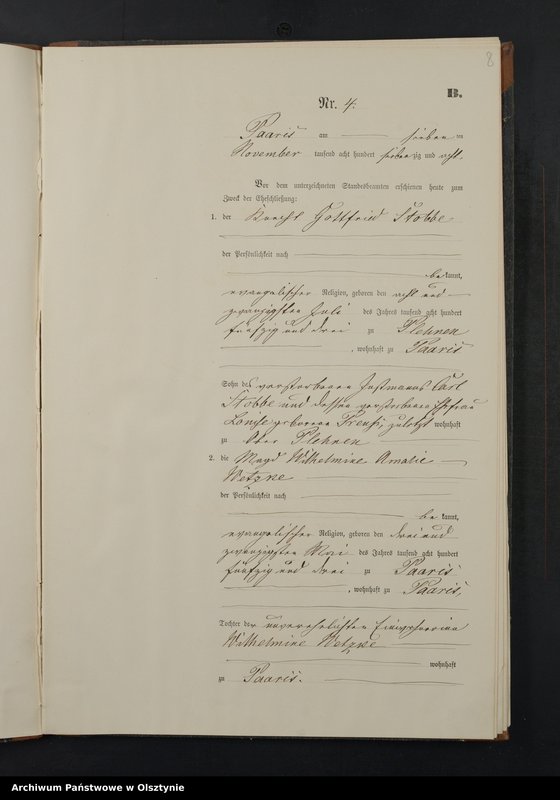 8
B.
Nr. 4.
Paaris am sieben ten
November tausend acht hundert siebenzig und acht.
Vor dem unterzeichneten Standesbeamten erschienen heute zum
Zweck der Eheschließung:
1. der Knecht Gottfried Stobbe
der Persönlichkeit nach
be kannt,
evangelischer Religion, geboren den acht und
zwanzigsten Juli des Jahres tausend acht hundert
fünfzig und drei zu Plehnen
, wohnhaft zu Paaris
Sohn des verstorbenen Instmanns Carl
Stobbe und dessen verstorbenen Ehefrau
Louise geborenen Preuß, zuletzt wohnhaft
zu Ober Plehnen
2. die Magd Wilhelmine Amalie
Wetzke
der Persönlichkeit nach
be kannt,
evangelischer Religion, geboren den drei und
zwanzigsten Mai des Jahres tausend acht hundert
fünfzig und drei zu Paaris
, wohnhaft zu Paaris,
Tochter der unverehelichten Einwohnerin
Wilhelmine Wetzke
wohnhaft
zu Paaris.
Archiwum Państwowe w Olsztynie